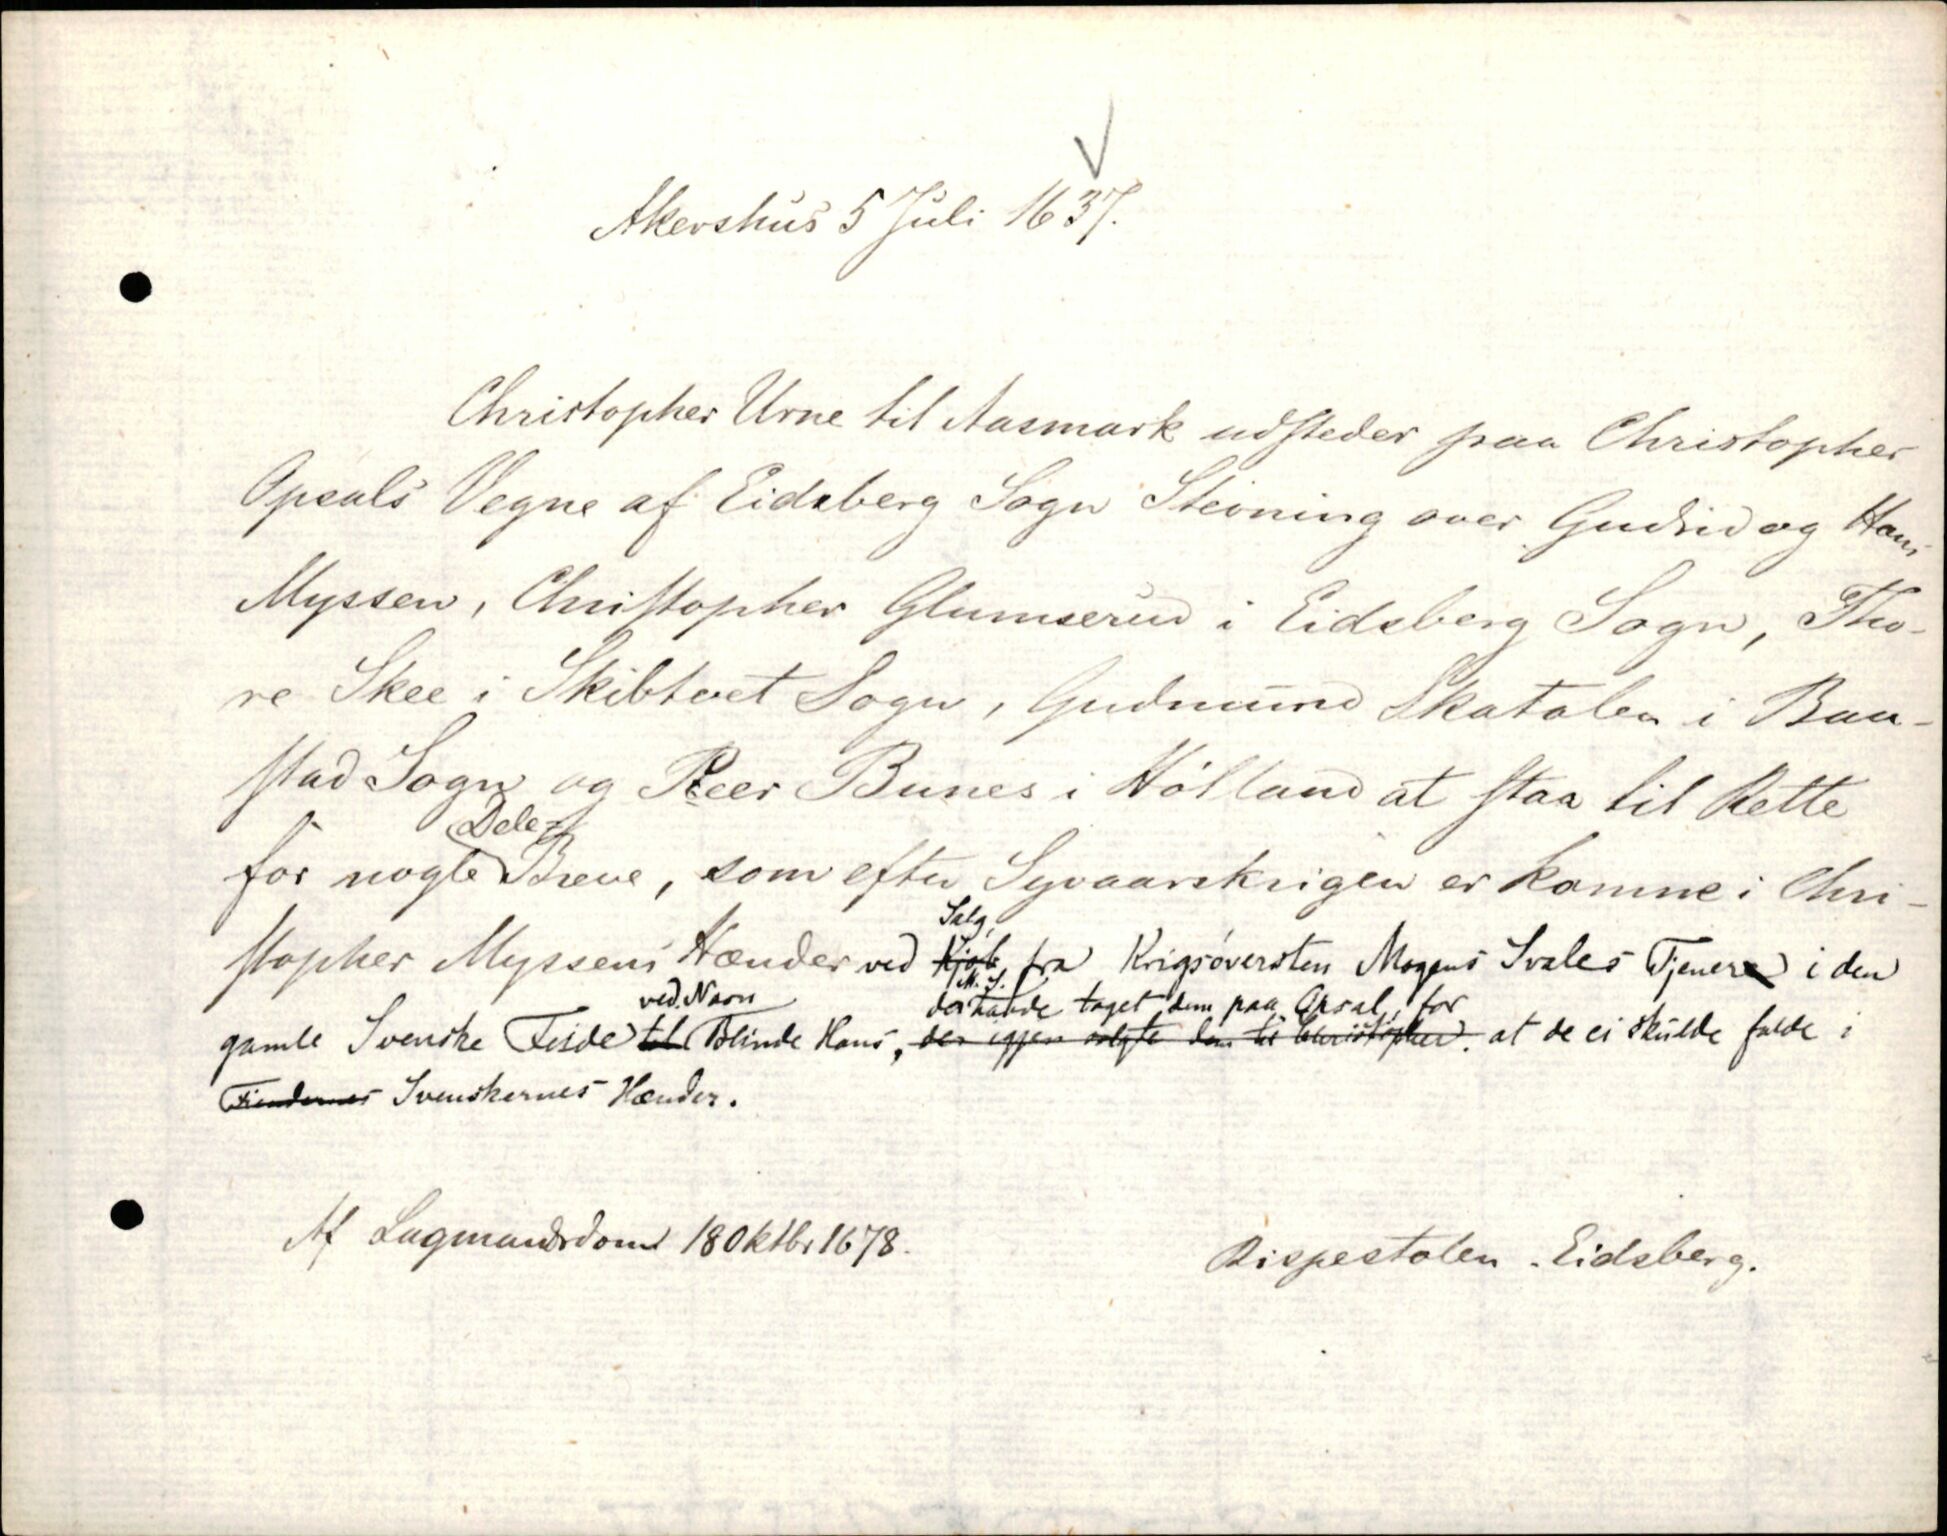 Akershus 5 Juli 1637.
Christopher Urne til Aasmark udsteder paa Christopher
Opsals Vegne af Eidsberg Sogn Stevning over Gudrid og Hans
Myssen, Christopher Glumserud i Eidsberg Sogn, Tho-
re Skee i Skibtvet Sogn, Gudmund Skatolen i Baa-
stad Sogn og Peer Bunes i Hölland at staa til Rette
Dele-
for nogle Breve, som efter Syvaarskrigen er komne i Chri-
Salg,
stopher Myssens Hænder ved Kjøb fra Krigsøversten Mogens Svales Tjener i den
ved Navn M. S.
der havde taget dem paa Opsal, for
gamle Svenske Feide til Blinde Hans, der igjen solgte dem til Christopher. at de ei skulde falde i
Fiendernes Svenskernes Hænder.
Af Lagmandsdom 18 Oktbr 1678.
Rispestolen. Eidsberg.